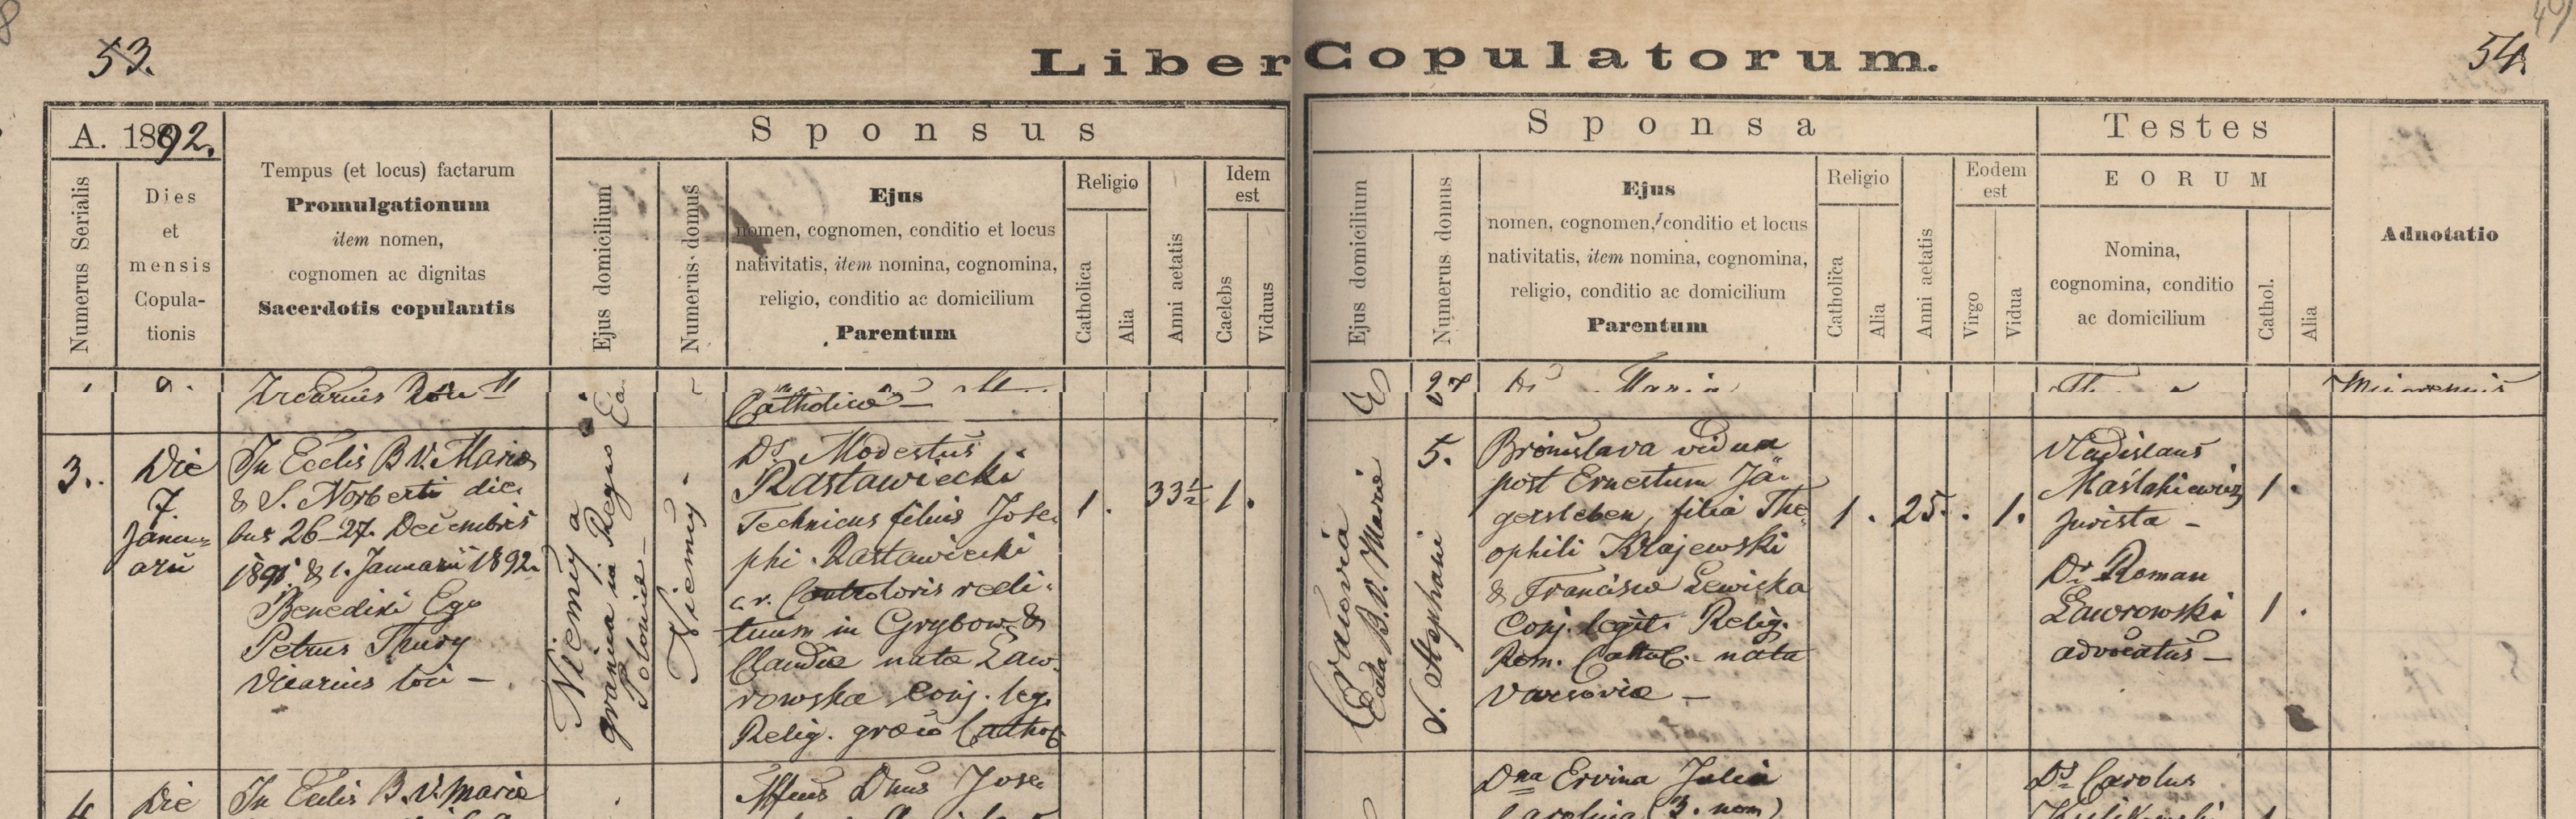 53.
Liber Copulatorum.
54.
A. 1892.
Sponsus
Sponsa
Testes
Numerus Serialis
Dies
et
mensis
Copula-
tionis
Tempus (et locus) factarum
Promulgationum
item nomen,
cognomen ac dignitas
Sacerdotis copulantis
Ejus domicilium
Numerus domus
Ejus
nomen, cognomen, conditio et locus
nativitatis, item nomina, cognomina,
religio, conditio ac domicilium
Parentum
Religio
Catholica
Alia
Anni aetatis
Idem
est
Caelebs
Viduus
Ejus domicilium
Numerus domus
Ejus
nomen, cognomen, conditio et locus
nativitatis, item nomina, cognomina,
religio, conditio ac domicilium
Parentum
Religio
Catholica
Alia
Anni aetatis
Eodem
est
Virgo
Vidua
EORUM
Nomina,
cognomina, conditio
ac domicilium
Cathol.
Alia
Adnotatio
Vicarius
Catholicae
3.
Die
7
Janu=
arii
In Ecclis B.V. Mariae
& S. Norberti die=
bus 26-27. Decembris
1891. & 1. Januarii 1892.
Benedixi Ego
Petrus Thury
Vicarius loci -
Niemyja
grania in Regno
Poloniae
Niemyj -
Ds Modestus
Rastawiecki
Technicus filius Jose=
phi Rastawiecki
c.r. Controloris redi=
tuum in Grybow &
Claudiae nata Law=
rowska Conj. leg.
Relig. graeco Cathol
1.
33½
1.
Cracovia
Ecclia B.V. Mariae
5.
S. Stephani
Bronislava vidua
post Ernestum Jä=
gersleben, filia The=
ophili Krajewski
& Francisca Lewicka
Conj. legit. Relig.
Rom. Cathol. - nata
Varsoviae -
1.
25.
1.
Vladislaus
Maślakiewicz
Jurista -
1.
Dr Roman
Ławrowski
advocatus -
1.
4
Die
In Ecclis B.V. Mariae
Dnus Jose=
Dna Ervina Julia
Carolina (3. nom)
Ds Carolus